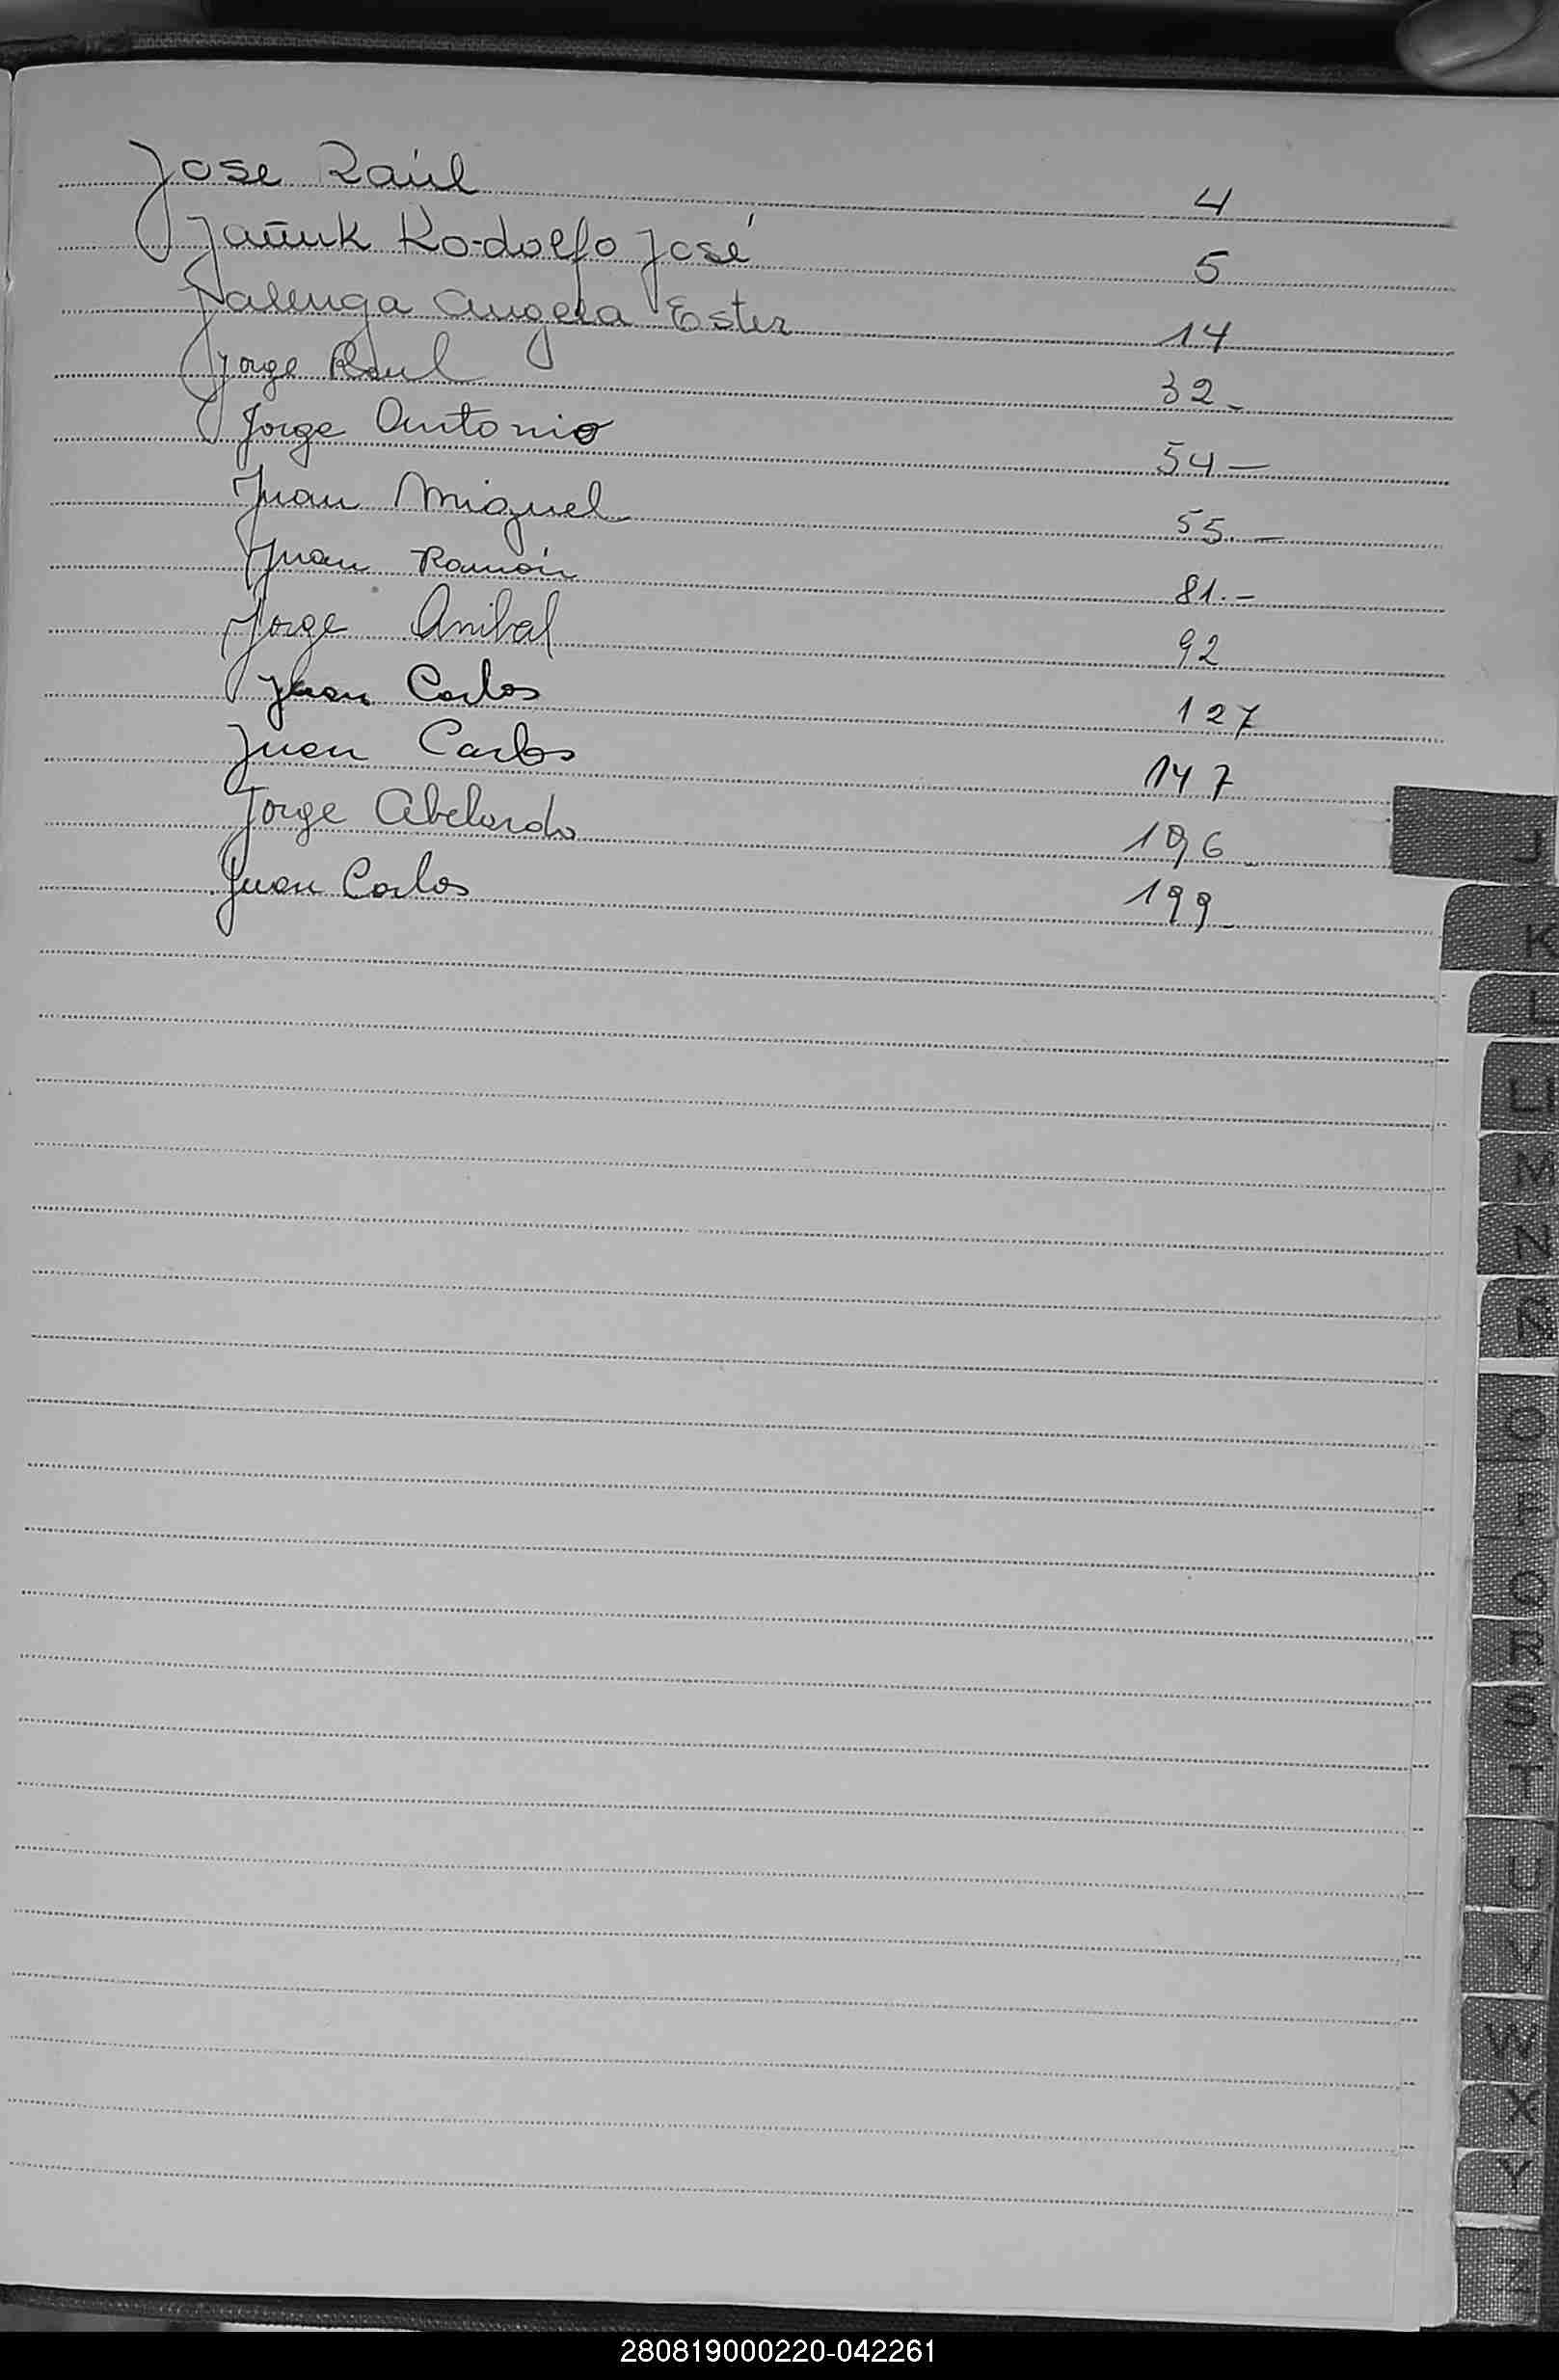 Jose Raúl 4
Jañuk Rodolfo José 5
Jalenga Angela Ester 14
Jorge Raul 32-
Jorge Antonio 54-
Juan Miguel 55.-
Juan Ramón 81.-
Jorge Anibal 92
Juan Carlos 127
Juan Carlos 147
Jorge Abelardo 196-
Juan Carlos 199-
J
K
L
LL
M
N
Ñ
O
P
Q
R
S
T
U
V
W
X
Y
Z
280819000220-042261